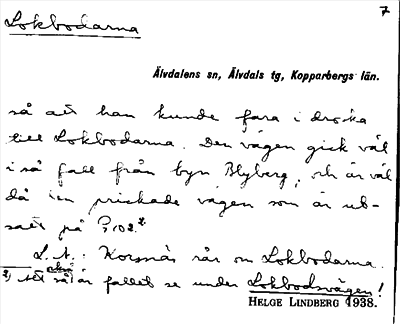 7
Lokbodarna
Älvdalens sn, Älvdals tg, Kopparbergs län.
så att han kunde fara i droska
till Lokbodarna. Den vägen gick väl
i så fall från byn Blyberg, och är väl
då den prickade vägen som är ut-
satt på P102.²
L. A.: Korsnäs rår om Lokbodarna.
²) Att så är fallet se under Lokbodsvägen!
HELGE LINDBERG 1938.